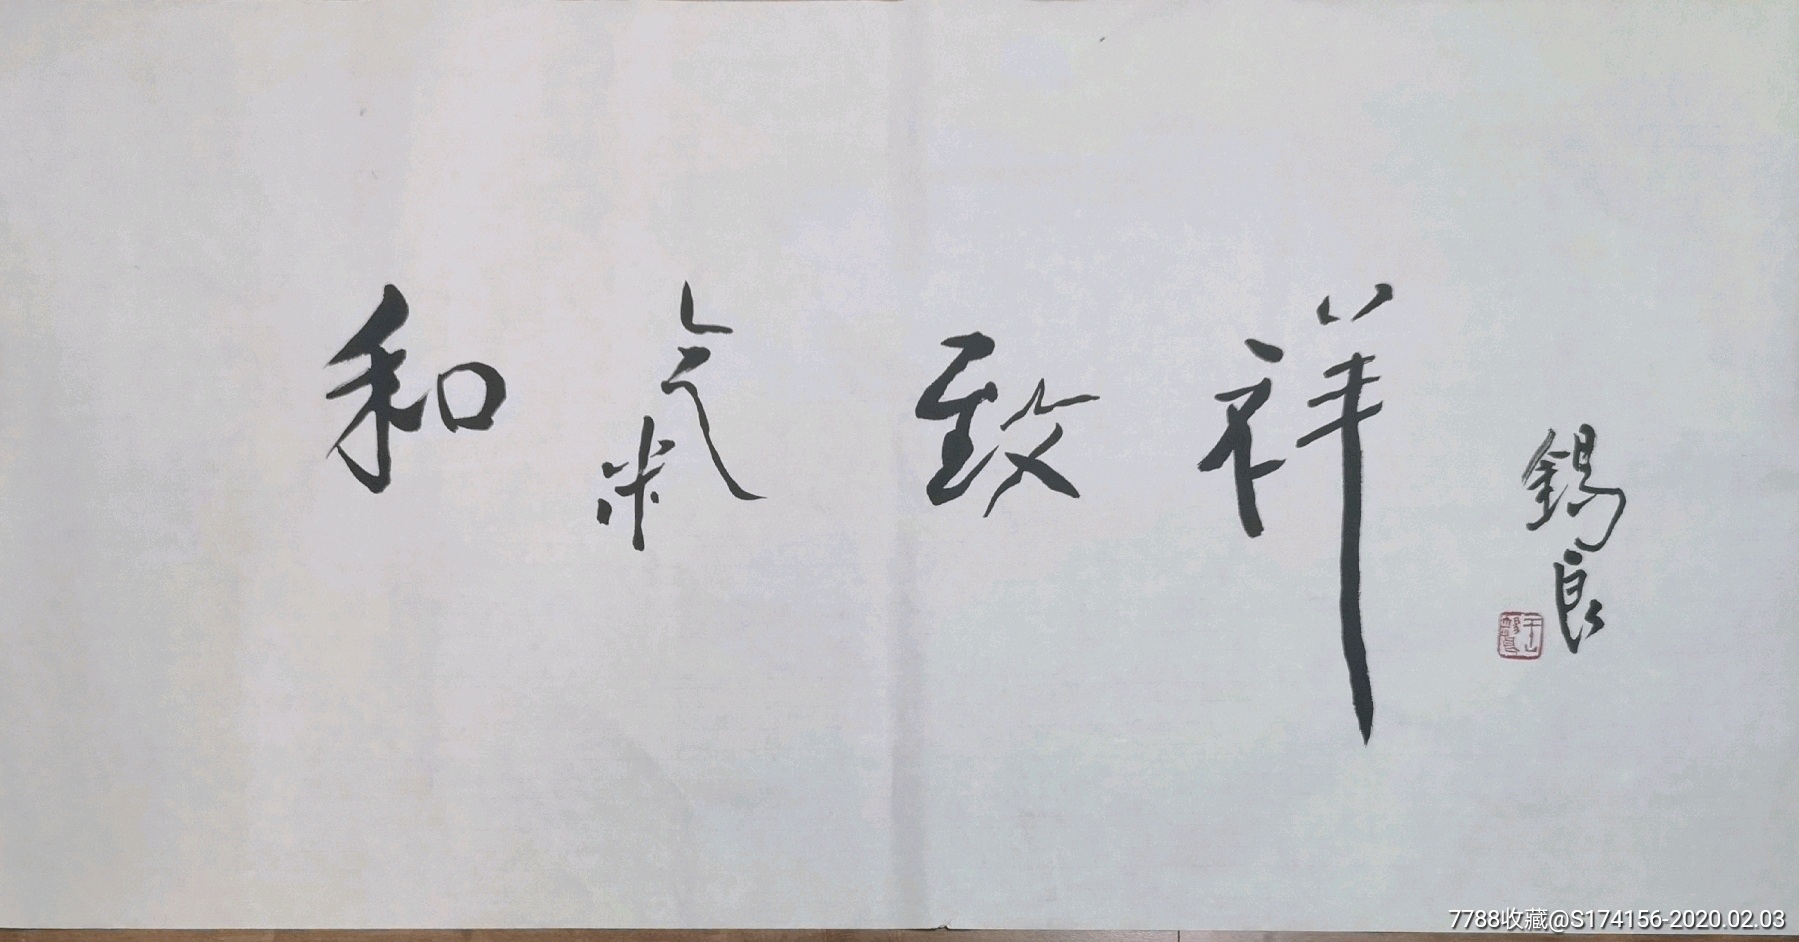 和氣致祥
錫良
7788收藏@S174156-2020.02.03